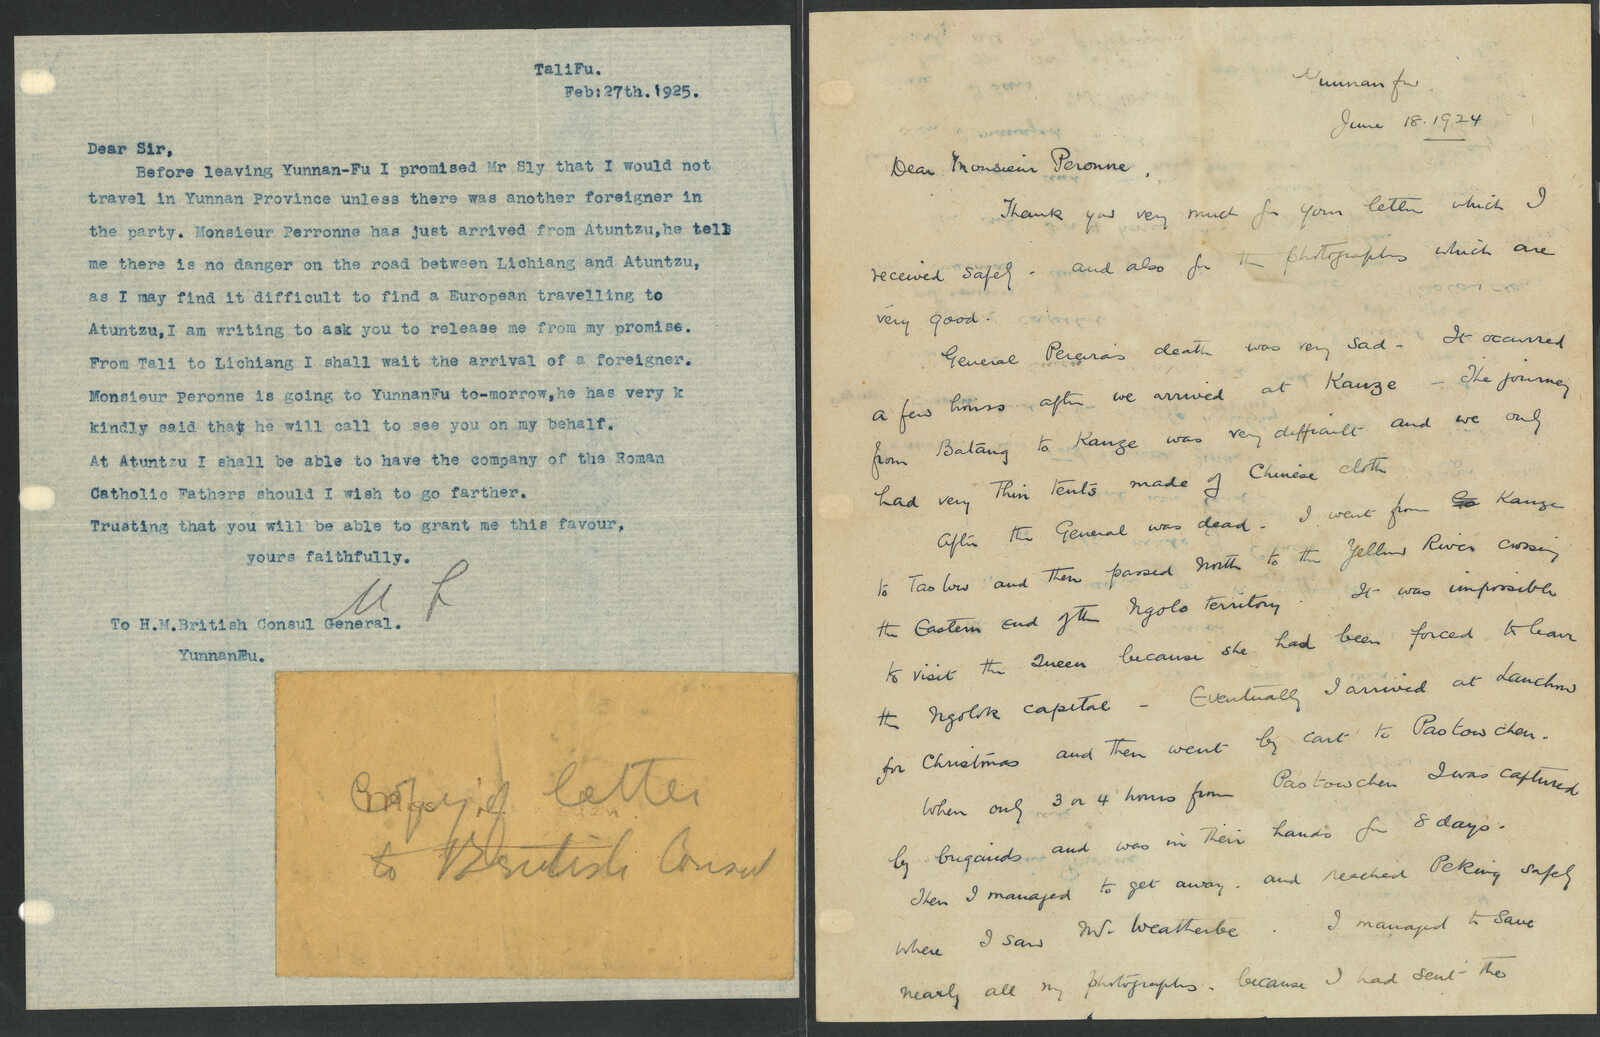 TaliFu.
Feb:27th.1925.
Dear Sir,
Before leaving Yunnan-Fu I promised Mr Sly that I would not
travel in Yunnan Province unless there was another foreigner in
the party. Monsieur Perronne has just arrived from Atuntzu,he tells
me there is no danger on the road between Lichiang and Atuntzu,
as I may find it difficult to find a European travelling to
Atuntzu,I am writing to ask you to release me from my promise.
From Tali to Lichiang I shall wait the arrival of a foreigner.
Monsieur Peronne is going to YunnanFu to-morrow,he has very k
kindly said that he will call to see you on my behalf.
At Atuntzu I shall be able to have the company of the Roman
Catholic Fathers should I wish to go farther.
Trusting that you will be able to grant me this favour,
yours faithfully.
To H.M.British Consul General.
YunnanFu.
Copy of letter
to British Consul
Yunnan fu.
June 18. 1924
Dear Monsieur Peronne,
Thank you very much for your letter which I
received safely - and also for the photographs which are
very good.
General Pereira's death was very sad - It occurred
a few hours after we arrived at Kanze - The journey
from Batang to Kanze was very difficult and we only
had very thin tents made of Chinese cloth
After the General was dead - I went from Kanze
to Taslow and then passed North to the Yellow River crossing
the Eastern end of the Ngolo territory. It was impossible
to visit the Queen because she had been forced to leave
the Ngolok capital - Eventually I arrived at Lanchow
for Christmas and then went by cart to Paotowchen.
When only 3 or 4 hours from Paotowchen I was captured
by brigands and was in their hands for 8 days.
Then I managed to get away. and reached Peking safely
where I saw Mr. Weatherbe. I managed to save
nearly all my photographs. because I had sent the